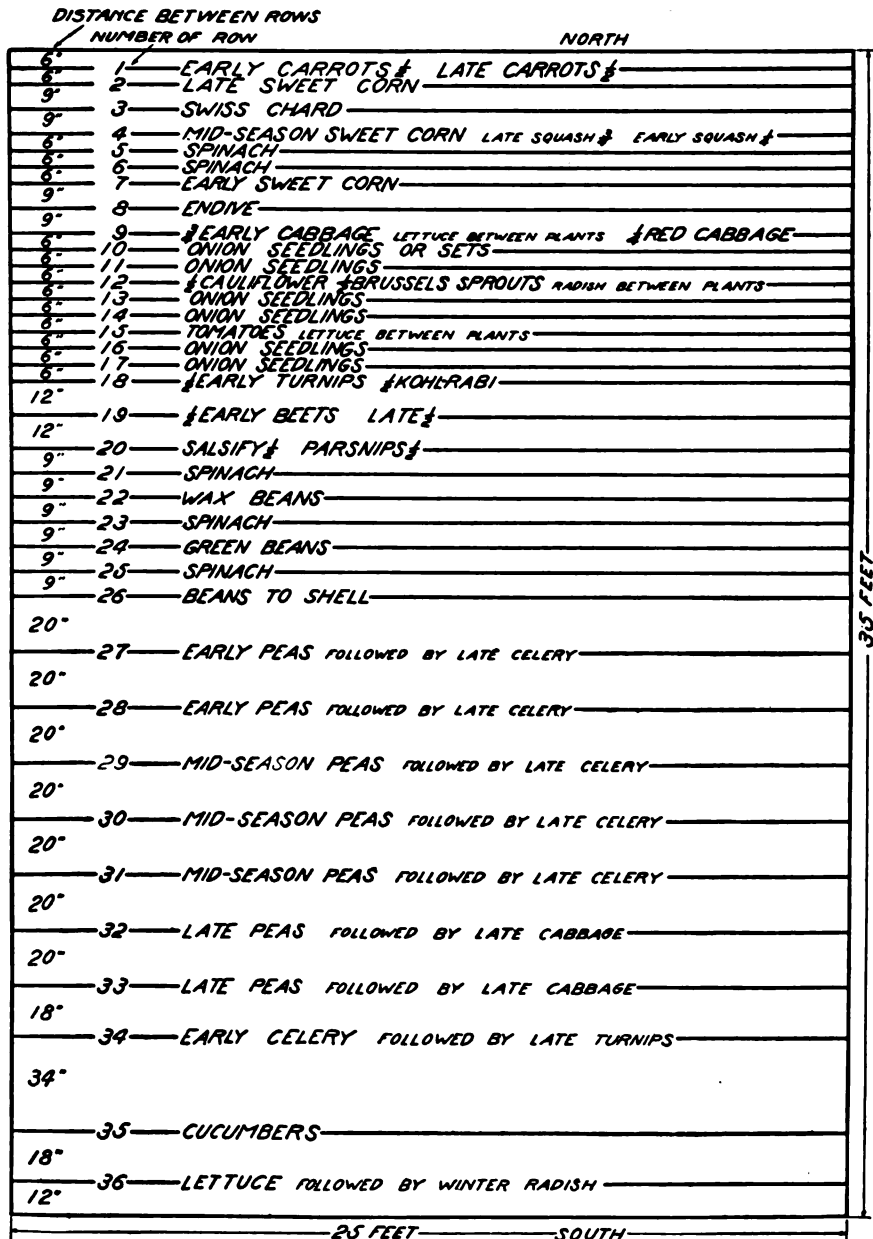 DISTANCE BETWEEN ROWS
NUMBER OF ROW NORTH
6"
1 EARLY CARROTS ½ LATE CARROTS ½
6"
2 LATE SWEET CORN
9"
3 SWISS CHARD
9"
4 MID-SEASON SWEET CORN LATE SQUASH EARLY SQUASH
6"
5 SPINACH
6"
6 SPINACH
6"
7 EARLY SWEET CORN
9"
8 ENDIVE
9"
9 EARLY CABBAGE LETTUCE BETWEEN PLANTS RED CABBAGE
6"
10 ONION SEEDLINGS OR SETS
6"
11 ONION SEEDLINGS
6"
12 ½ CAULIFLOWER ½ BRUSSELS SPROUTS RADISH BETWEEN PLANTS
6"
13 ONION SEEDLINGS
6"
14 ONION SEEDLINGS
6"
15 TOMATOES LETTUCE BETWEEN PLANTS
6"
16 ONION SEEDLINGS
6"
17 ONION SEEDLINGS
6"
18 ½ EARLY TURNIPS ½ KOHL-RABI
12"
19 ½ EARLY BEETS LATE ½
12"
20 SALSIFY ½ PARSNIPS ½
9"
21 SPINACH
9"
22 WAX BEANS
9"
23 SPINACH
9"
24 GREEN BEANS
9"
25 SPINACH
9"
26 BEANS TO SHELL
20"
27 EARLY PEAS FOLLOWED BY LATE CELERY
20"
28 EARLY PEAS FOLLOWED BY LATE CELERY
20"
29 MID-SEASON PEAS FOLLOWED BY LATE CELERY
20"
30 MID-SEASON PEAS FOLLOWED BY LATE CELERY
20"
31 MID-SEASON PEAS FOLLOWED BY LATE CELERY
20"
32 LATE PEAS FOLLOWED BY LATE CABBAGE
20"
33 LATE PEAS FOLLOWED BY LATE CABBAGE
18"
34 EARLY CELERY FOLLOWED BY LATE TURNIPS
34"
35 CUCUMBERS
18"
36 LETTUCE FOLLOWED BY WINTER RADISH
12"
25 FEET SOUTH
35 FEET